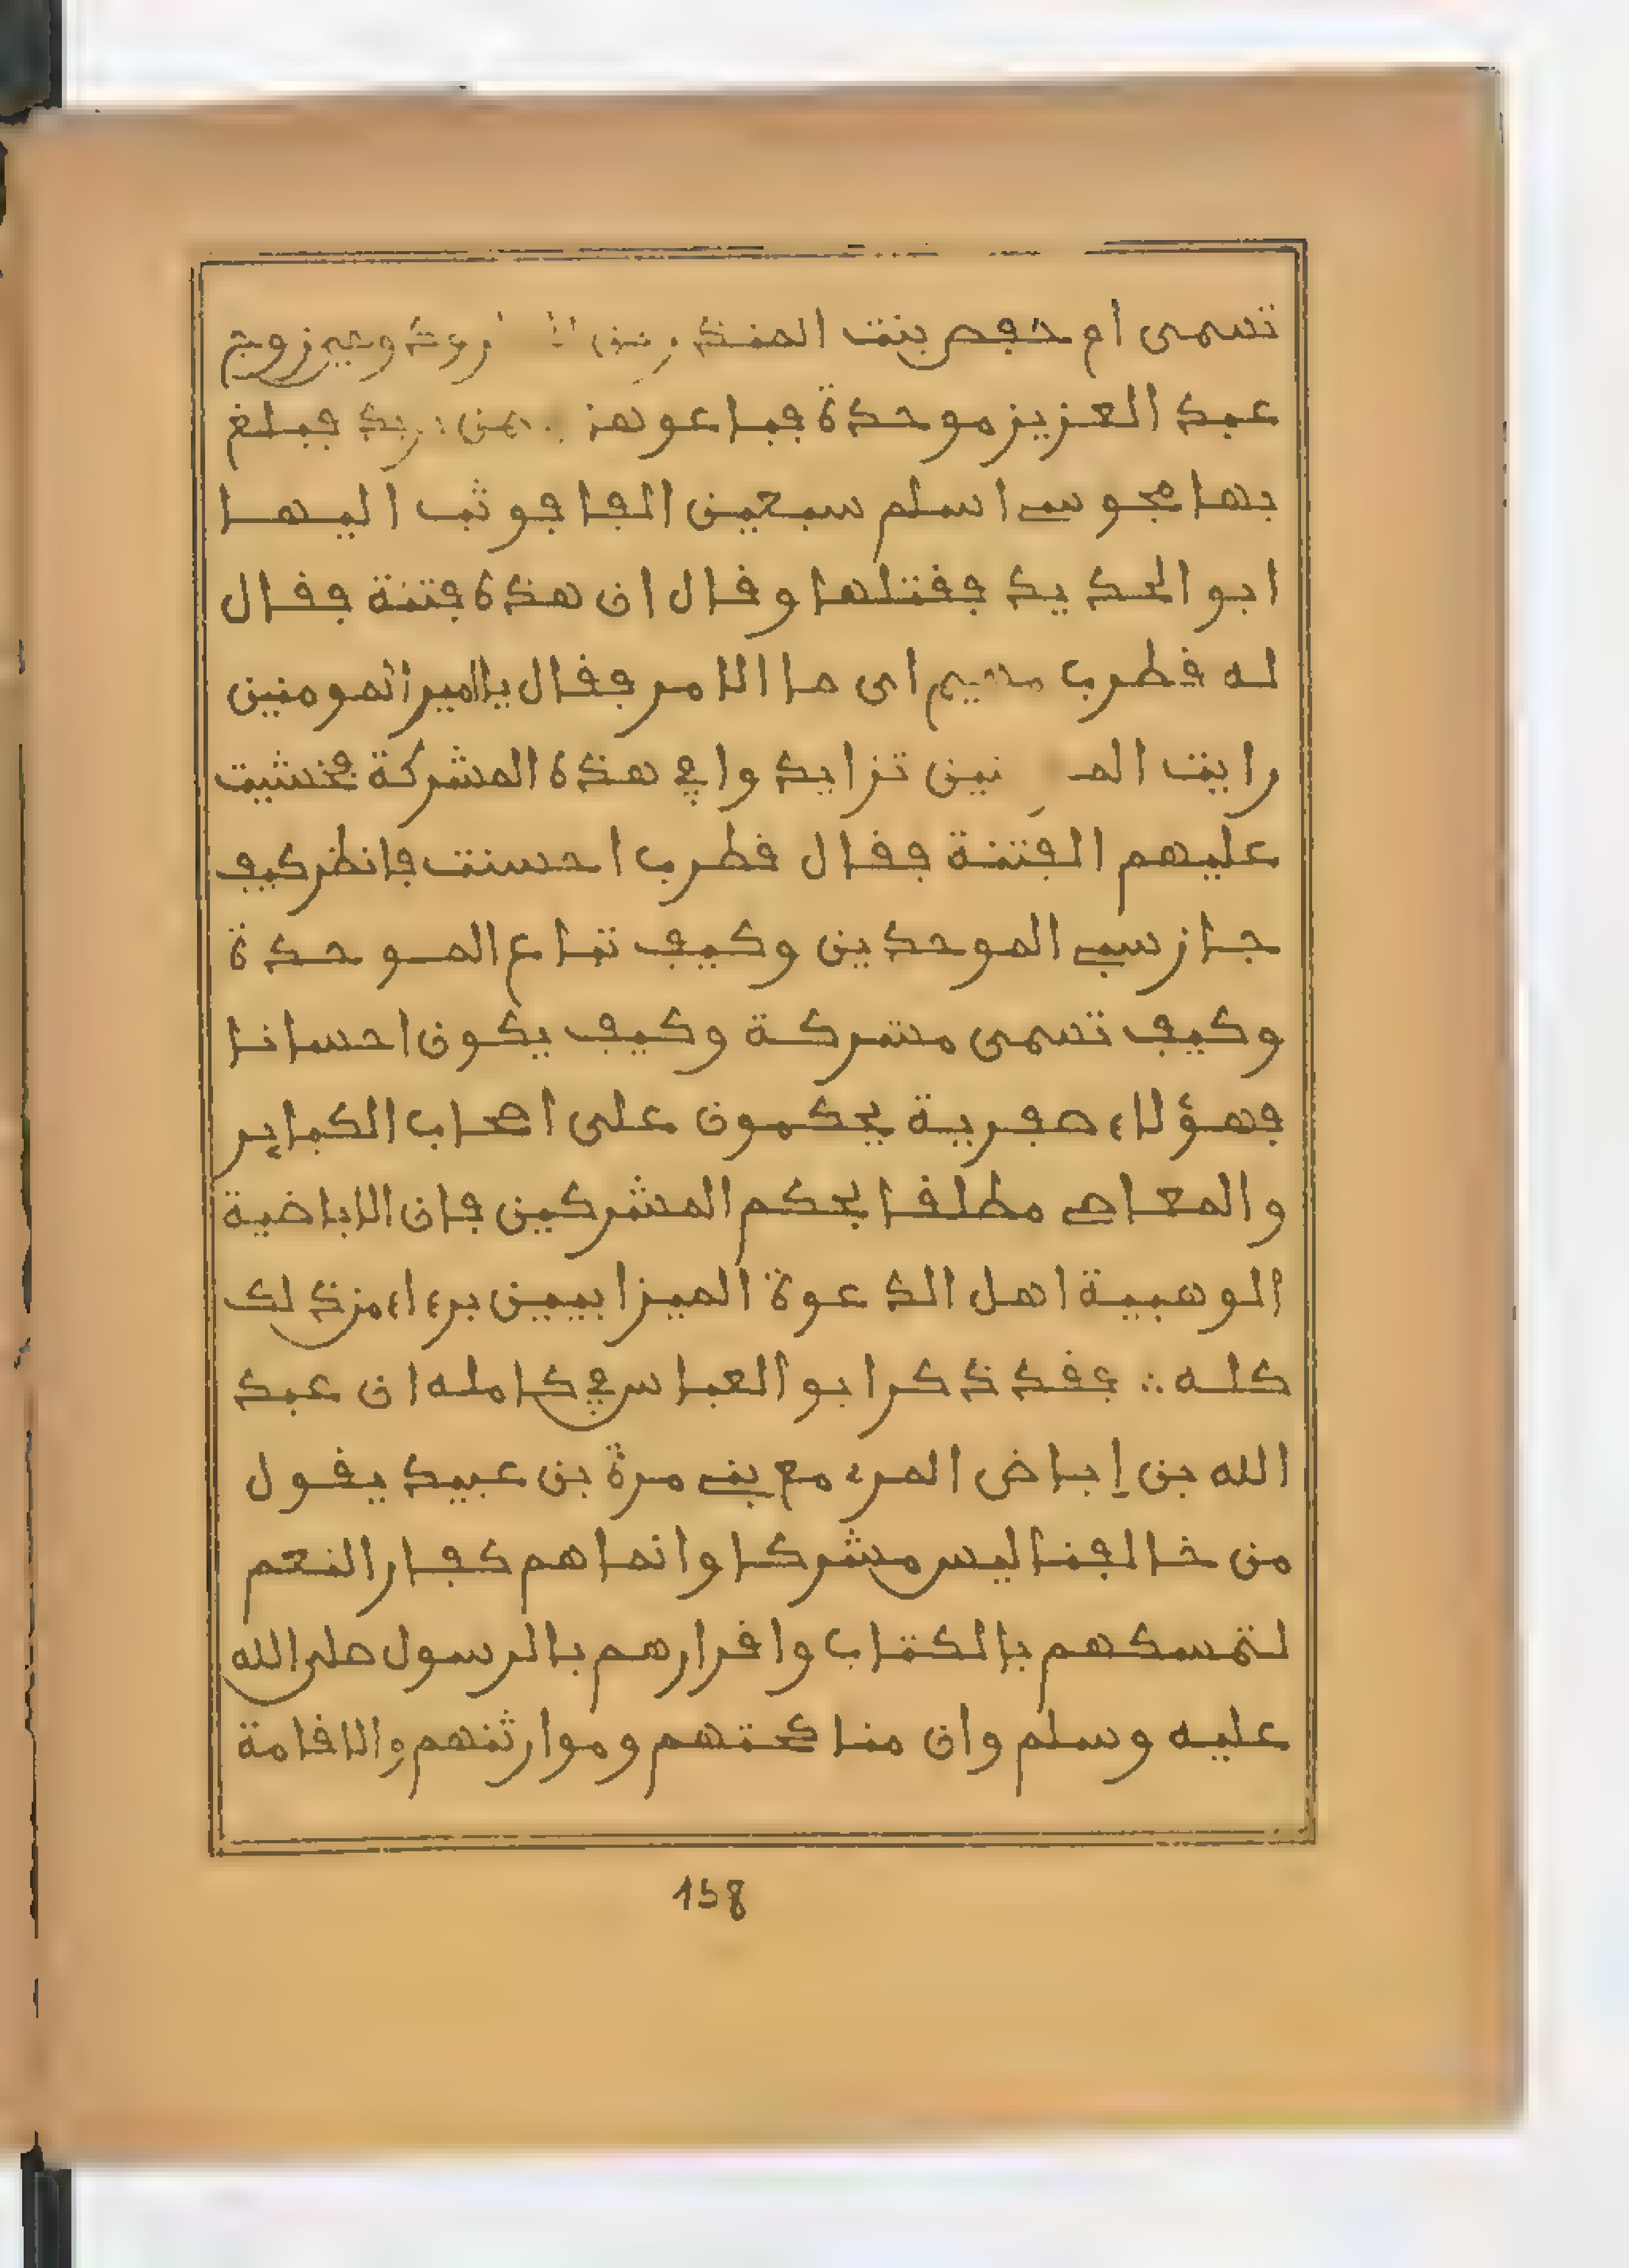 تسمى ام حفص بنت المنذر بن الجارود وهي زوج
عبد العزيز موحدة فباعوها فيمن يزيد فبلغ
بها مجوسي اسلم سبعين الفا فوثب اليها
ابو الحديد فقتلها وقال ان هذه فتنة فقال
له قطري مهيم اى ما الامر فقال يا امير المومنين
رايت المومنين تزايدوا في هذه المشركة فخشيت
عليهم الفتنة فقال قطري احسنت فانظر كيف
جاز سبي الموحدين وكيف تباع الموحدة
وكيف تسمى مشركة وكيف يكون احسانا
فهؤلاء صفرية يحكمون على اصحاب الكباير
والمعاصي مطلقا بحكم المشركين فان الاباضية
الوهبية اهل الدعوة الميزابيين برءاء من ذلك
كله ∴ فقد ذكر ابو العباس في كامله ان عبد
الله بن إباض المرء مع بني مرة بن عبيد يقول
من خالفنا ليس مشركا وانما هم كفار النعم
لتمسكهم بالكتاب واقرارهم بالرسول صلى الله
عليه وسلم وان مناكحتهم وموارثتهم والاقامة
158